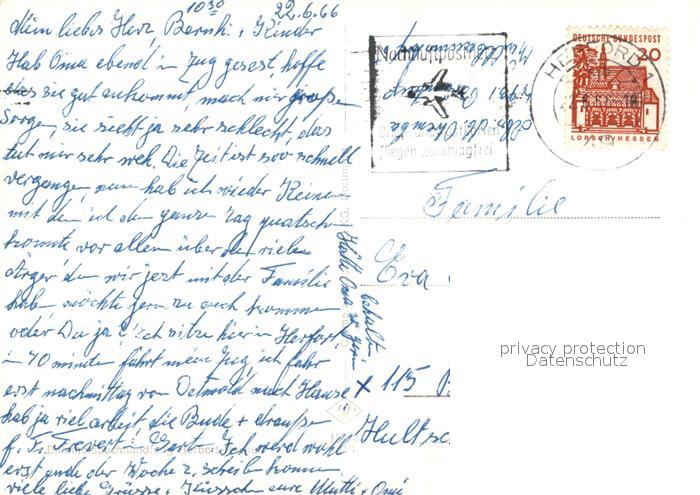 10³⁰ 22.6.66
Mein liebes Herz, Bernh. + Kinder
Hab Oma ebend in Zug gesezt, hoffe
das sie gut ankommt, mach mir große
Sorge, sie sieht ja sehr schlecht, das
tut mir sehr weh. Die Zeit ist soo schnell
vergangen, nun hab ich wieder Keine
mit den ich den ganzen Tag quatschen
konnte vor allem über den vielen
Ärger den wir jezt mit der Familie
habe, möchte gern zu euch kommen
oder Du ja! Ich sitze hier in Herford
in 40 minuten fährt mein Zug, ich fahr
erst nachmittag von Detmold nach Hause
hab ja viel arbeit, die Bude + draußen
f. Fr. Frevert i. Gart. Ich werd wohl
erst ende der Woche z. schreib. kommen.
viele liebe Grüsse + Küsschen eure Mutti + Omi
Hätte Oma so gern
behalt.
Nachtluftpost
fliegen zuschlagfrei
HERFORD 1
DEUTSCHE BUNDESPOST
30
LORSCH/HESSEN
Familie
Eva
x 115
Hultsc
privacy protection
Datenschutz